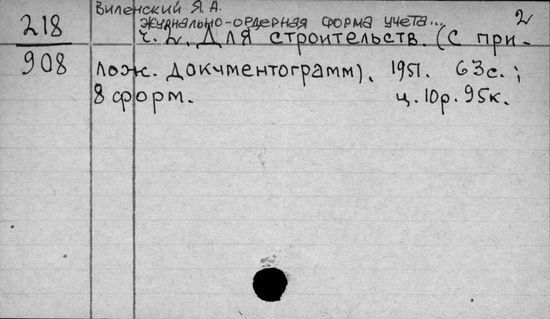 Виленский Я. А.
журнально-ордерная форма учета... 2
218 ч. 2. Для строительств. (с при-
908 лож. документограмм). 1951. 63с.;
8 форм. ц. 10р. 95к.